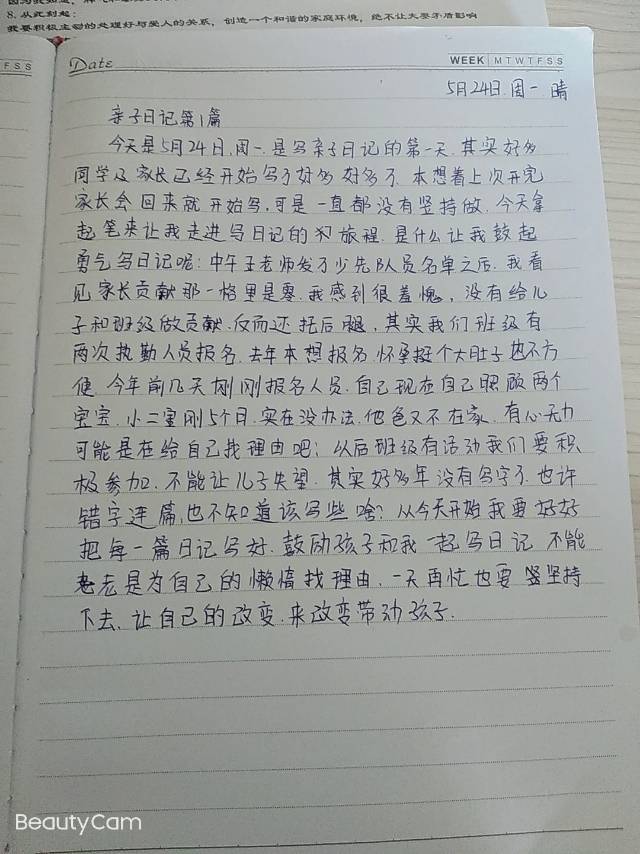 8. 从此刻起：
我要积极主动的处理好与爱人的关系，创造一个和谐的家庭环境，绝不让夫妻矛盾影响
FSS
Date
WEEK MTWTFSS
5月24日.周一 晴
亲子日记第1篇
今天是5月24日,周一.是写亲子日记的第一天.其实好多
同学及家长已经开始写了好多好多了.本想着上次开完
家长会回来就开始写,可是一直都没有坚持做.今天拿
起笔来让我走进写日记的旅程.是什么让我鼓起
勇气写日记呢:中午王老师发了少先队员名单之后.我看
见家长贡献那一格里是零.我感到很羞愧，没有给儿
子和班级做贡献.反而还拖后腿，其实我们班级有
两次执勤人员报名.去年本想报名.怀孕挺个大肚子也不方
便.今年前几天刚刚报名人员.自己现在自己照顾两个
宝宝.小二宝刚5个月.实在没办法.他爸又不在家.有心无力
可能是在给自己找理由吧;以后班级有活动我们要积
极参加.不能让儿子失望.其实好多年没有写字了.也许
错字连篇,也不知道该写些啥?从今天开始我要好好
把每一篇日记写好.鼓励孩子和我一起写日记.不能
老是为自己的懒惰找理由.一天再忙也要坚持
下去.让自己的改变.来改变带动孩子.
BeautyCam